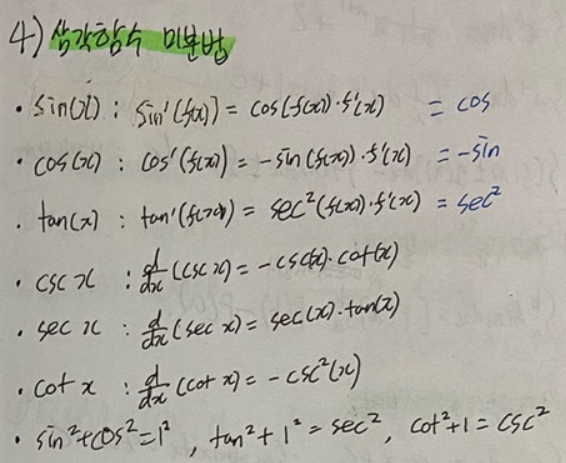 4) 삼각함수 미분법
• sin(x) : sin'(f(x)) = cos(f(x))·f'(x) = cos
• cos(x) : cos'(f(x)) = -sin(f(x))·f'(x) = -sin
• tan(x) : tan'(f(x)) = sec²(f(x))·f'(x) = sec²
• csc x : d/dx (csc x) = -csc(x)·cot(x)
• sec x : d/dx (sec x) = sec(x)·tan(x)
• cot x : d/dx (cot x) = -csc²(x)
• sin²+cos²=1², tan²+1²=sec², cot²+1=csc²